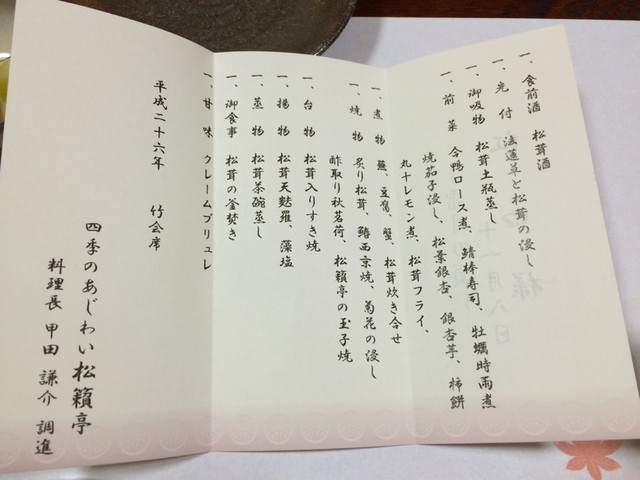 一、食前酒　松茸酒
一、先　付　法蓮草と松茸の浸し
一、御吸物　松茸土瓶蒸し
一、前　菜　合鴨ロース煮、鯖棒寿司、牡蠣時雨煮
焼茄子浸し、松葉銀杏、銀杏芋、柿餅
丸十レモン煮、松茸フライ、
一、煮　物　蕪、豆腐、蟹、松茸炊き合せ
一、焼　物　炙り松茸、鰆西京焼、菊花の浸し
酢取り秋茗荷、松籟亭の玉子焼
一、台　物　松茸入りすき焼
一、揚　物　松茸天麩羅、藻塩
一、蒸　物　松茸茶碗蒸し
一、御食事　松茸の釜焚き
一、甘　味　クレームブリュレ
平成二十六年　　竹会席
四季のあじわい松籟亭
料理長　甲田　謙介　調進